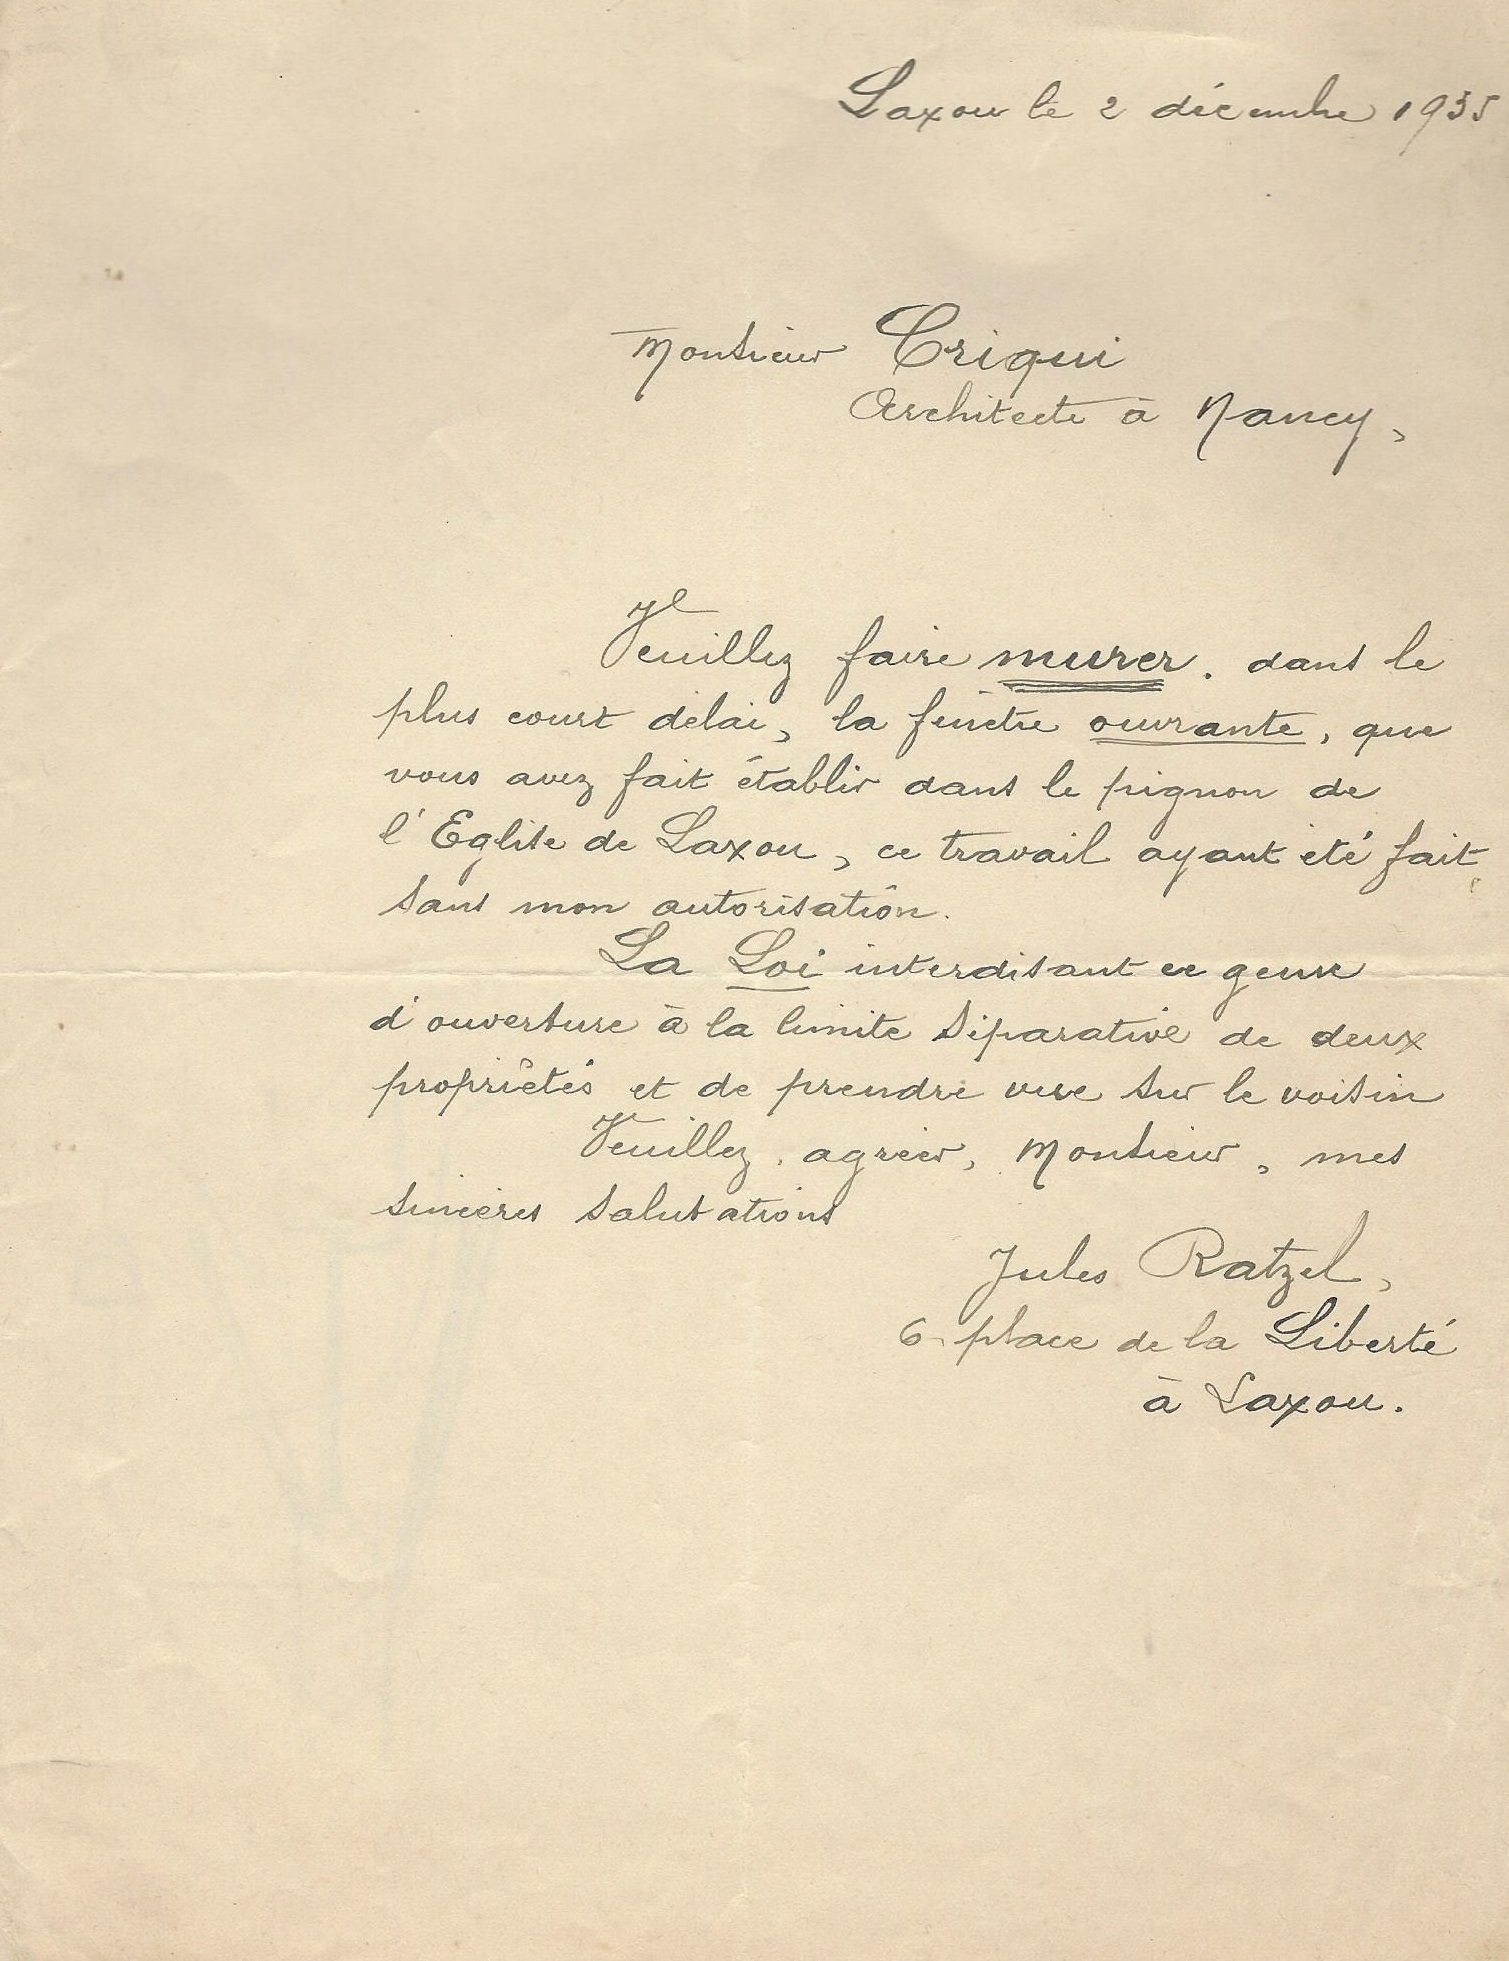 Laxou le 2 décembre 1935
Monsieur Criqui
Architecte à Nancy,
Veuillez faire murer. dans le
plus court délai, la fenêtre ouvrante, que
vous avez fait établir dans le pignon de
l'Eglise de Laxou, ce travail ayant été fait
sans mon autorisation.
La Loi interdisant ce genre
d'ouverture à la limite séparative de deux
propriétés et de prendre vue sur le voisin
Veuillez agréer, Monsieur, mes
sincères salutations
Jules Ratzel,
6 place de la Liberté
à Laxou.